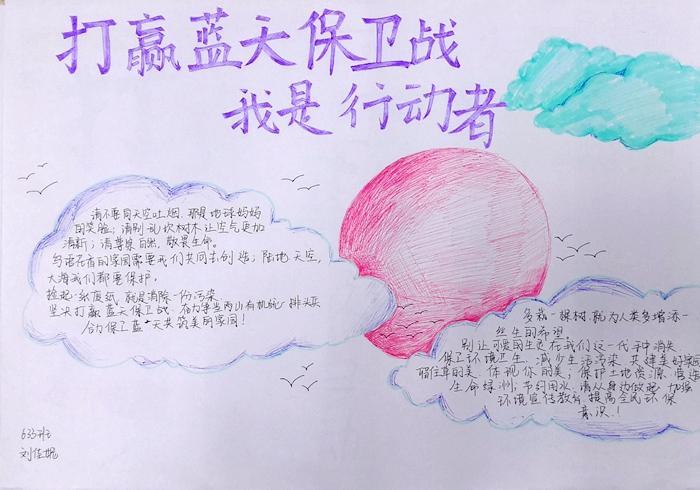 打赢蓝天保卫战
我是行动者
请不要向天空吐烟,那是地球妈妈
的笑脸;请别乱砍树木,让空气更加
清新;请尊崇自然,敬畏生命。
鸟语花香的家园需要我们共同去创造;陆地天空,
大海我们都要保护。
捡起一纸废纸,就是消除一份污染
坚决打赢蓝天保卫战
合力保卫蓝天共筑美丽家园!
多栽一棵树,就为人类多增添一
丝生的希望
别让可爱的生灵在我们这一代手中消失
保卫环境卫生,减少生活污染,共建美好家园
昭住草的美,体现你的美;保护土地资源,营造
生命绿洲,节约用水,请从身边做起,加强
环境宣传教育,提高全民环保
意识!
633班
刘佳妮